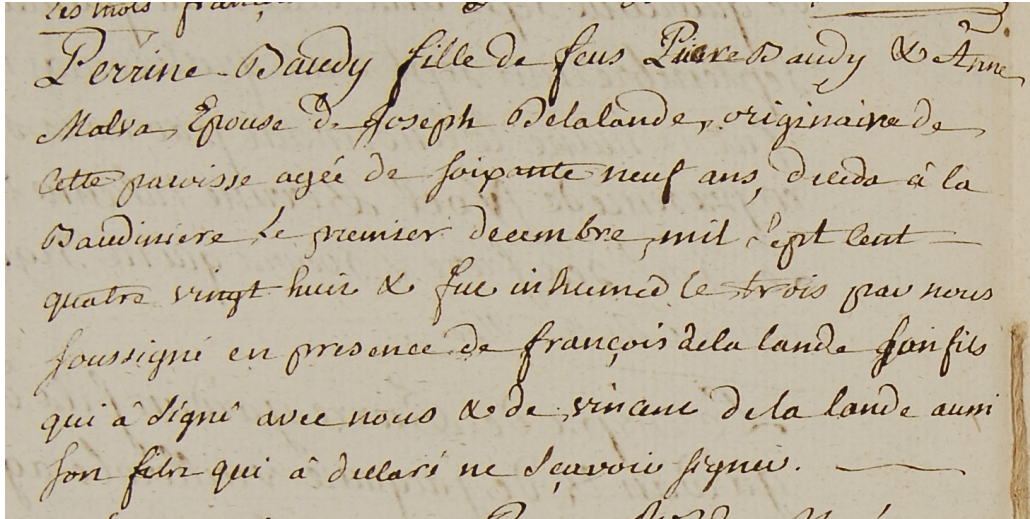 Les mots
Perrine Baudy fille de feus Pierre Baudy & Anne
Malva Epouse de Joseph Delalande, originaire de
cette paroisse agée de soixante neuf ans, deceda à la
Baudiniere le premier decembre mil sept cent
quatre vingt huit & fut inhumed le trois par nous
soussigné en presence de françois dela lande son fils
qui à signé avec nous & de vincent de la lande aussi
son fils qui à declaré ne sçavoir signer.